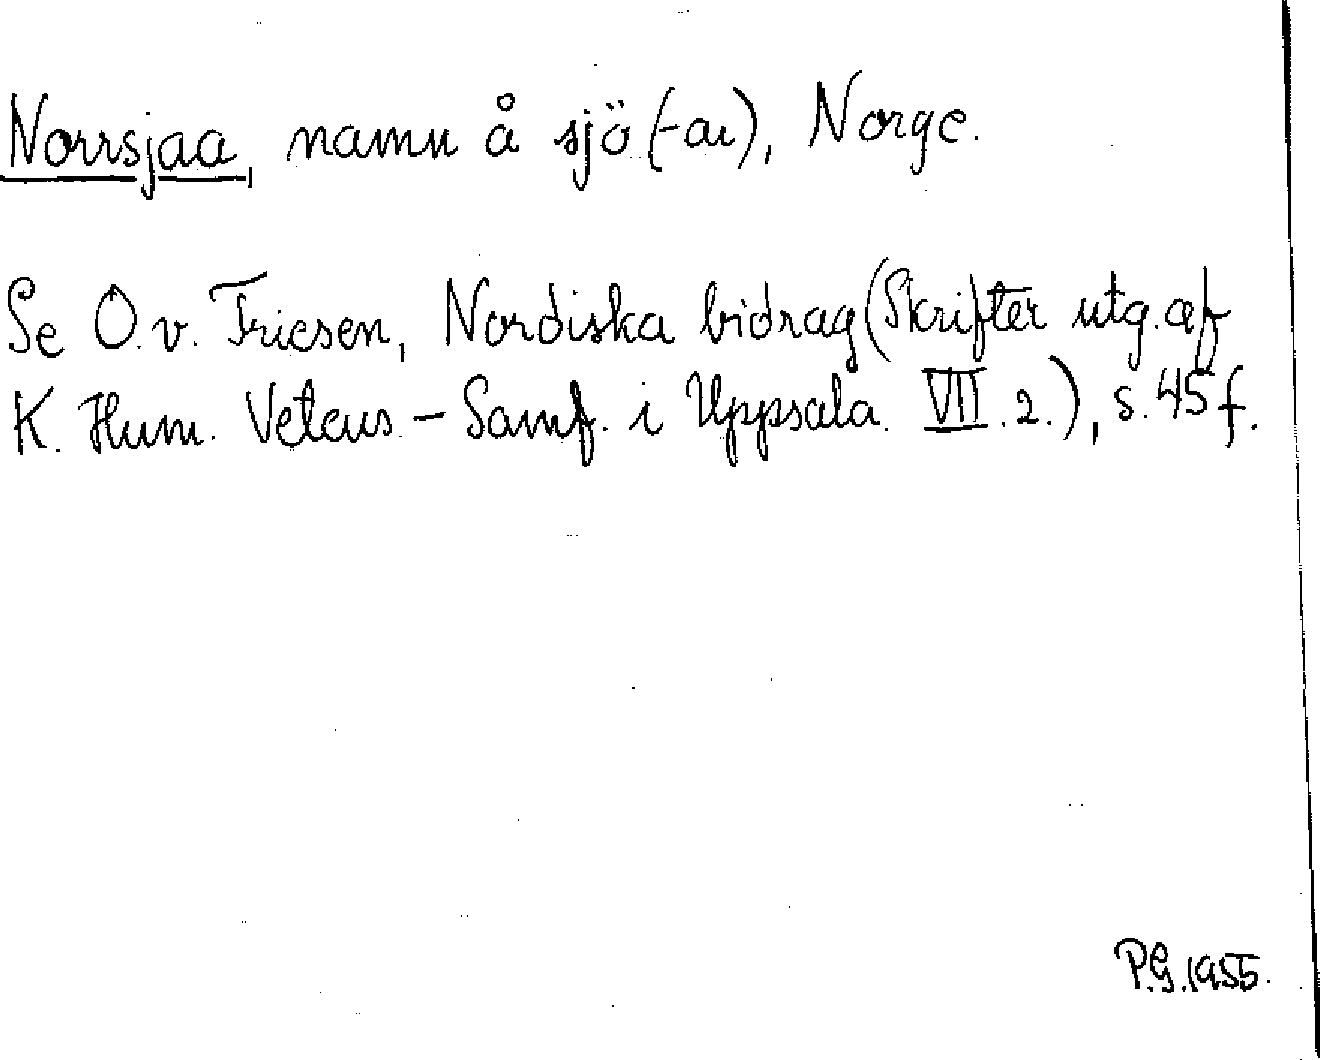 Norrsjaa, namn å sjö (-ar), Norge.
Se O. v. Friesen, Nordiska bidrag (Skrifter utg. af
K. Hum. Vetens.-Samf. i Uppsala. VII. 2.), s. 45 f.
P.G. 1955.